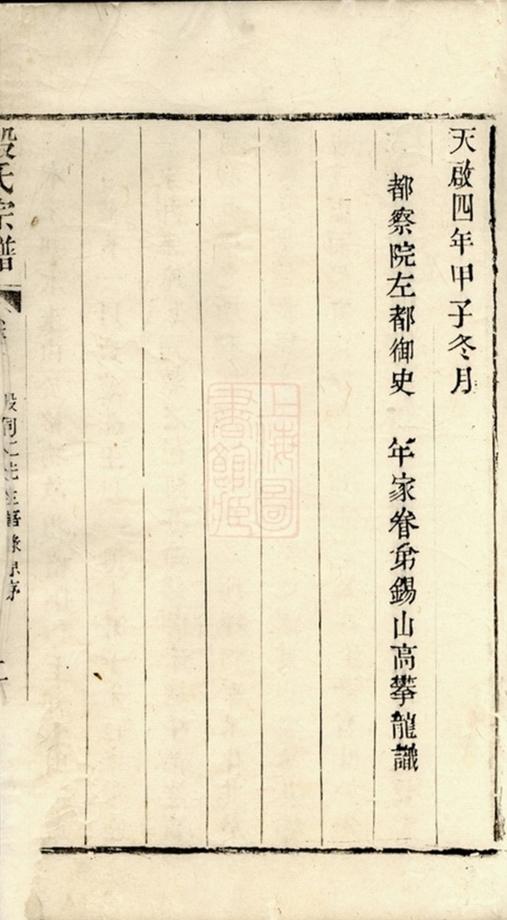 天啟四年甲子冬月
都察院左都御史　年家眷弟錫山高攀龍識
上海圖書館藏
氏宗譜
先生語錄原序